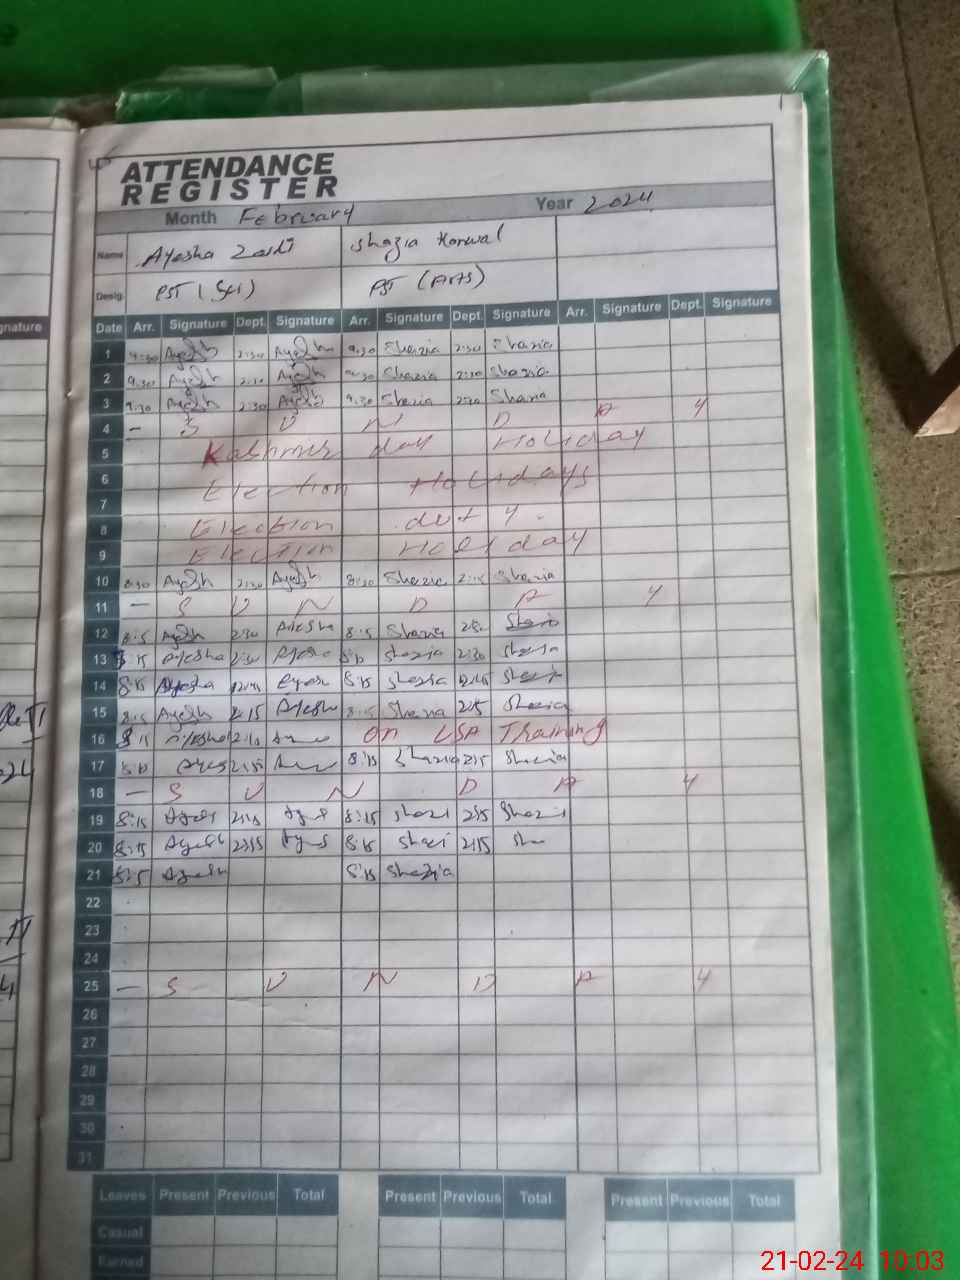 ATTENDANCE
REGISTER
Month February Year 2024
Name Ayesha Shazia Kanwal
Desig. PST (Sci) PST (Arts)
gnature
Date Arr. Signature Dept. Signature Arr. Signature Dept. Signature Arr. Signature Dept. Signature
1 9:30 Ayesh 2:30 Ayesh 9:30 Shazia 2:30 Shazia
2 9:30 Ayesh 2:30 Ayesh 9:30 Shazia 2:30 Shazia
3 9:30 Ayesh 2:30 Ayesh 9:30 Shazia 2:30 Shazia
4 – S U N D A Y
5 Kashmir day Holiday
6 Election Holidays
7
8 Election duty.
9 Election Holiday
10 8:30 Ayesh 2:30 Ayesh 8:30 Shazia 2:15 Shazia
11 – S U N D A Y
12 8:15 Ayesh 2:30 Ayesha 8:15 Shazia Shazia
13 8:15 Ayesha 2:30 Ayesha 8:15 Shazia 2:30 Shazia
14 8:15 Ayesha Ayesh 8:15 Shazia Shazia
15 8:15 Ayesh 2:15 Ayesha 8:15 Shazia 2:15 Shazia
16 8:15 Ayesha On LSA Training
17 8:15 Shazia 2:15 Shazia
18 – S U N D A Y
19 8:15 Ayesh 2:15 8:15 Shazi 2:15 Shazi
20 8:15 Ayesh 2:15 8:15 Shazi 2:15 Sha
21 8:15 Ayesh 8:15 Shazia
22
23
24
25 – S U N D A Y
26
27
28
29
30
31
Leaves Present Previous Total Present Previous Total Present Previous Total
Casual
Earned
21-02-24 10:03